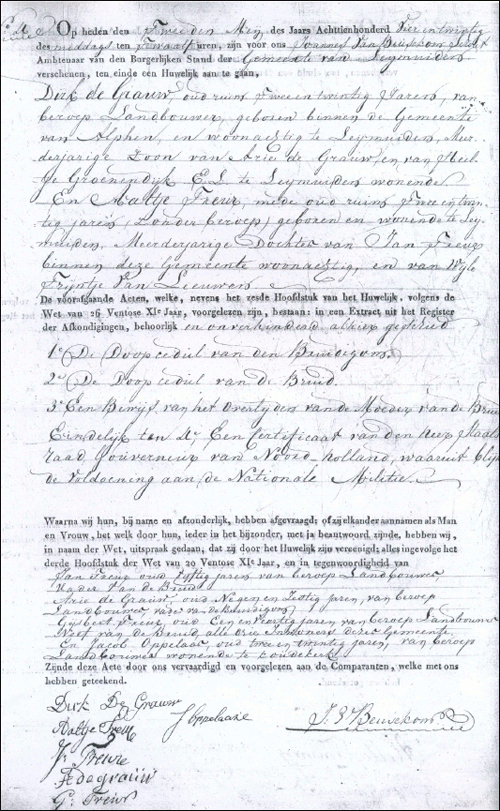 Op heden den Twee den Mey, des Jaars Achttienhonderd Vier en twintig
des middags ten Twaalf uren, zijn voor ons Joannes Van Beusekom
Ambtenaar van den Borgerlijken Stand der Gemeente van Leymuiden
verschenen, ten einde een Huwelijk aan te gaan,
Dirk de Graauw, oud ruim twee en twintig Jaren, van
beroep Landbouwer, geboren binnen de Gemeente
van Alphen, en woonachtig te Leymuiden, Meer
derjarige Zoon van Arie de Grauw, en van Neel
tje Groenendijk E.L. te Leymuiden wonende
En Aaltje Treur, mede oud ruim Twee en twin
tig jaren (zonder beroep) geboren en wonende te Ley
muiden, Meerderjarige Dochter van Jan Treur
binnen deze Gemeente woonachtig, en van Wyle
Tryntje Van Leeuwen
De voorafgaande Acten, welke, nevens het zesde Hoofdstuk van het Huwelijk, volgens de
Wet van 26 Ventose XIe Jaar, voorgelezen zijn, bestaan: in een Extract uit het Register
der Afkondigingen, behoorlijk en onverhinderd alhier geschied
1e De Doopcedul van den Bruidegom.
2e De Doopcedul van de Bruid.
3e Een Bewijs van het Overlyden van de Moeder van de Bruid
Eindelijk ten 4e Een Certificaat van den Heer Staats
raad Gouverneur van Noord-Holland, waaruit
de Voldoening aan de Nationale Militie
Waarna wij hun, bij name en afzonderlijk, hebben afgevraagd: of zij elkander aannamen als Man
en Vrouw, het welk door hun, ieder in het bijzonder, met ja beantwoord zijnde, hebben wij,
in naam der Wet, uitspraak gedaan, dat zij door het Huwelijk zijn vereenigd; alles ingevolge het
derde Hoofdstuk der Wet van 20 Ventose XIe Jaar, en in tegenwoordigheid van
Jan Treur oud Vyftig jaren van beroep Landbouwer
Vader van de Bruid
Arie de Graauw, oud Negen en Zestig jaren, van beroep
Landbouwer, vader van de Bruidegom
Gysbert Treur, oud Een en Veertig jaren van beroep Landbouwer
Neef van de Bruid, alle drie Inwoners dezer Gemeente
En Jacob Oppelaar, oud twee en twintig jaren, van beroep
Landbouwer wonende te Koudekerk
Zijnde deze Acte door ons vervaardigd en voorgelezen aan de Comparanten, welke met ons
hebben geteekend.
Dirk De Grauw
Aaltje Treur
J Oppelaar
J. V Beusekom
J. Treur
A de grauw
G. Treur